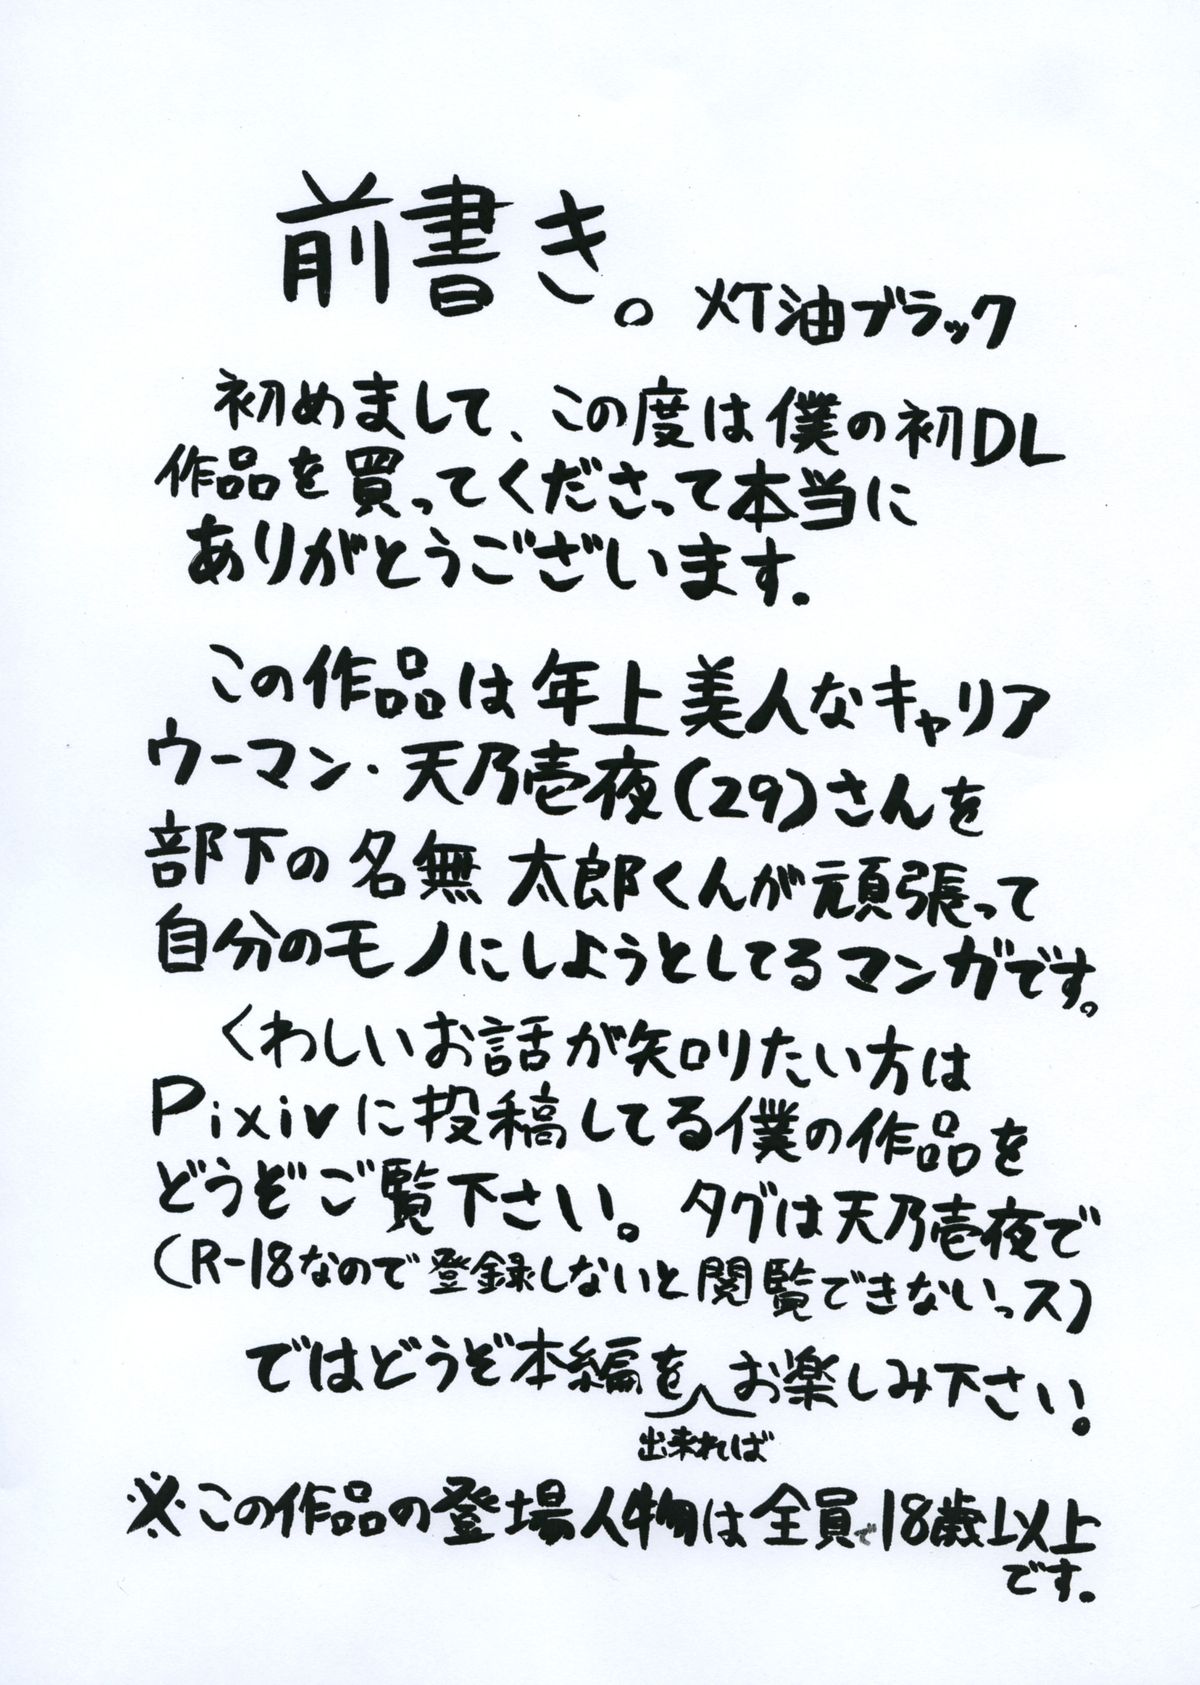 前書き。 灯油ブラック
初めまして、この度は僕の初DL
作品を買ってくださって本当に
ありがとうございます。
この作品は年上美人なキャリア
ウーマン・天乃壱夜(29)さんを
部下の名無 太郎くんが頑張って
自分のモノにしようとしてるマンガです。
くわしいお話が知りたい方は
Pixivに投稿してる僕の作品を
どうぞご覧下さい。タグは天乃壱夜で
(R-18なので登録しないと閲覧できないっス)
ではどうぞ本編をお楽しみ下さい。
出来れば
※この作品の登場人物は全員で18歳以上
です。